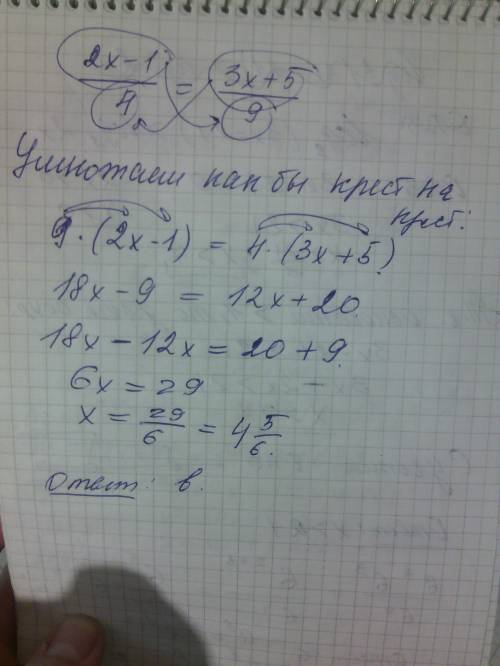 2x-1/4 = 3x+5/9
Умножаем как бы крест на
крест:
9·(2x-1) = 4·(3x+5)
18x-9 = 12x+20
18x-12x=20+9
6x=29
x=29/6=4 5/6.
Ответ: в.